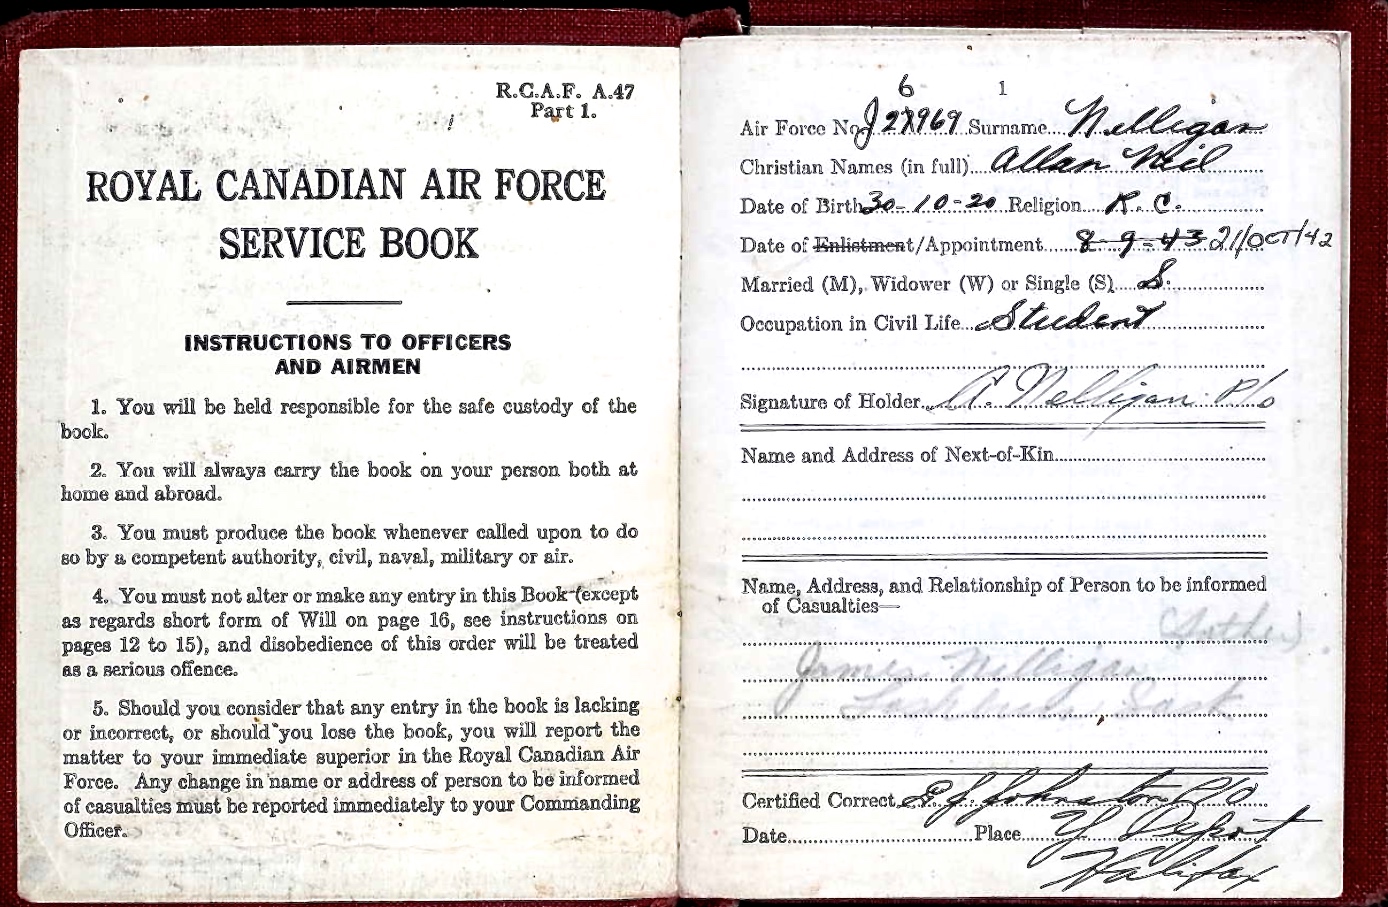 R.C.A.F. A.47
Part 1.
ROYAL CANADIAN AIR FORCE
SERVICE BOOK
INSTRUCTIONS TO OFFICERS
AND AIRMEN
1. You will be held responsible for the safe custody of the
book.
2. You will always carry the book on your person both at
home and abroad.
3. You must produce the book whenever called upon to do
so by a competent authority, civil, naval, military or air.
4. You must not alter or make any entry in this Book (except
as regards short form of Will on page 16, see instructions on
pages 12 to 15), and disobedience of this order will be treated
as a serious offence.
5. Should you consider that any entry in the book is lacking
or incorrect, or should you lose the book, you will report the
matter to your immediate superior in the Royal Canadian Air
Force. Any change in name or address of person to be informed
of casualties must be reported immediately to your Commanding
Officer.
6 1
Air Force No. J27969 Surname Nelligan
Christian Names (in full) Allan Neil
Date of Birth 30-10-20 Religion R.C.
Date of Enlistment/Appointment 8-9-43 21/OCT/42
Married (M), Widower (W) or Single (S) S.
Occupation in Civil Life Student
Signature of Holder A. Nelligan P/O
Name and Address of Next-of-Kin
Name, Address, and Relationship of Person to be informed
of Casualties—
(Father)
James Nelligan
Lashburn, Sask
Certified Correct E J Johnston P/O
Date Place "Y" Depot
Halifax